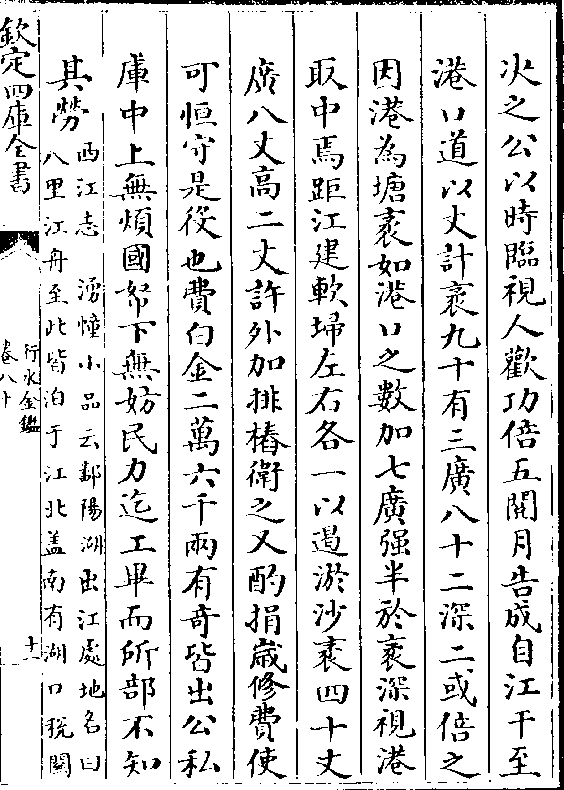 次之公以時臨視人歡功倍五閱月告成自江干至
港口道以丈計袤九十有三廣八十二深二或倍之
因港為塘袤如港口之數加七廣强半於袤深視港
取中焉距江建軟埽左右各一以遏淤沙袤四十丈
廣八丈高二丈許外加排樁衛之又酌捐歲修費使
可恒守是役也費白金二萬六千兩有奇皆出公私
庫中上無煩國帑下無妨民力迄工畢而所部不知
其勞
西江志　湧幢小品云鄱陽湖出江處地名曰
八里江舟至此皆泊于江北盖南有湖口稅關
欽定四庫全書
行水金鑑
卷八十
十一